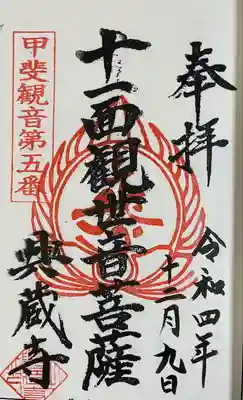 奉拝
令和四年
十二月九日
十一面観世音菩薩
甲斐観音第五番
興蔵寺